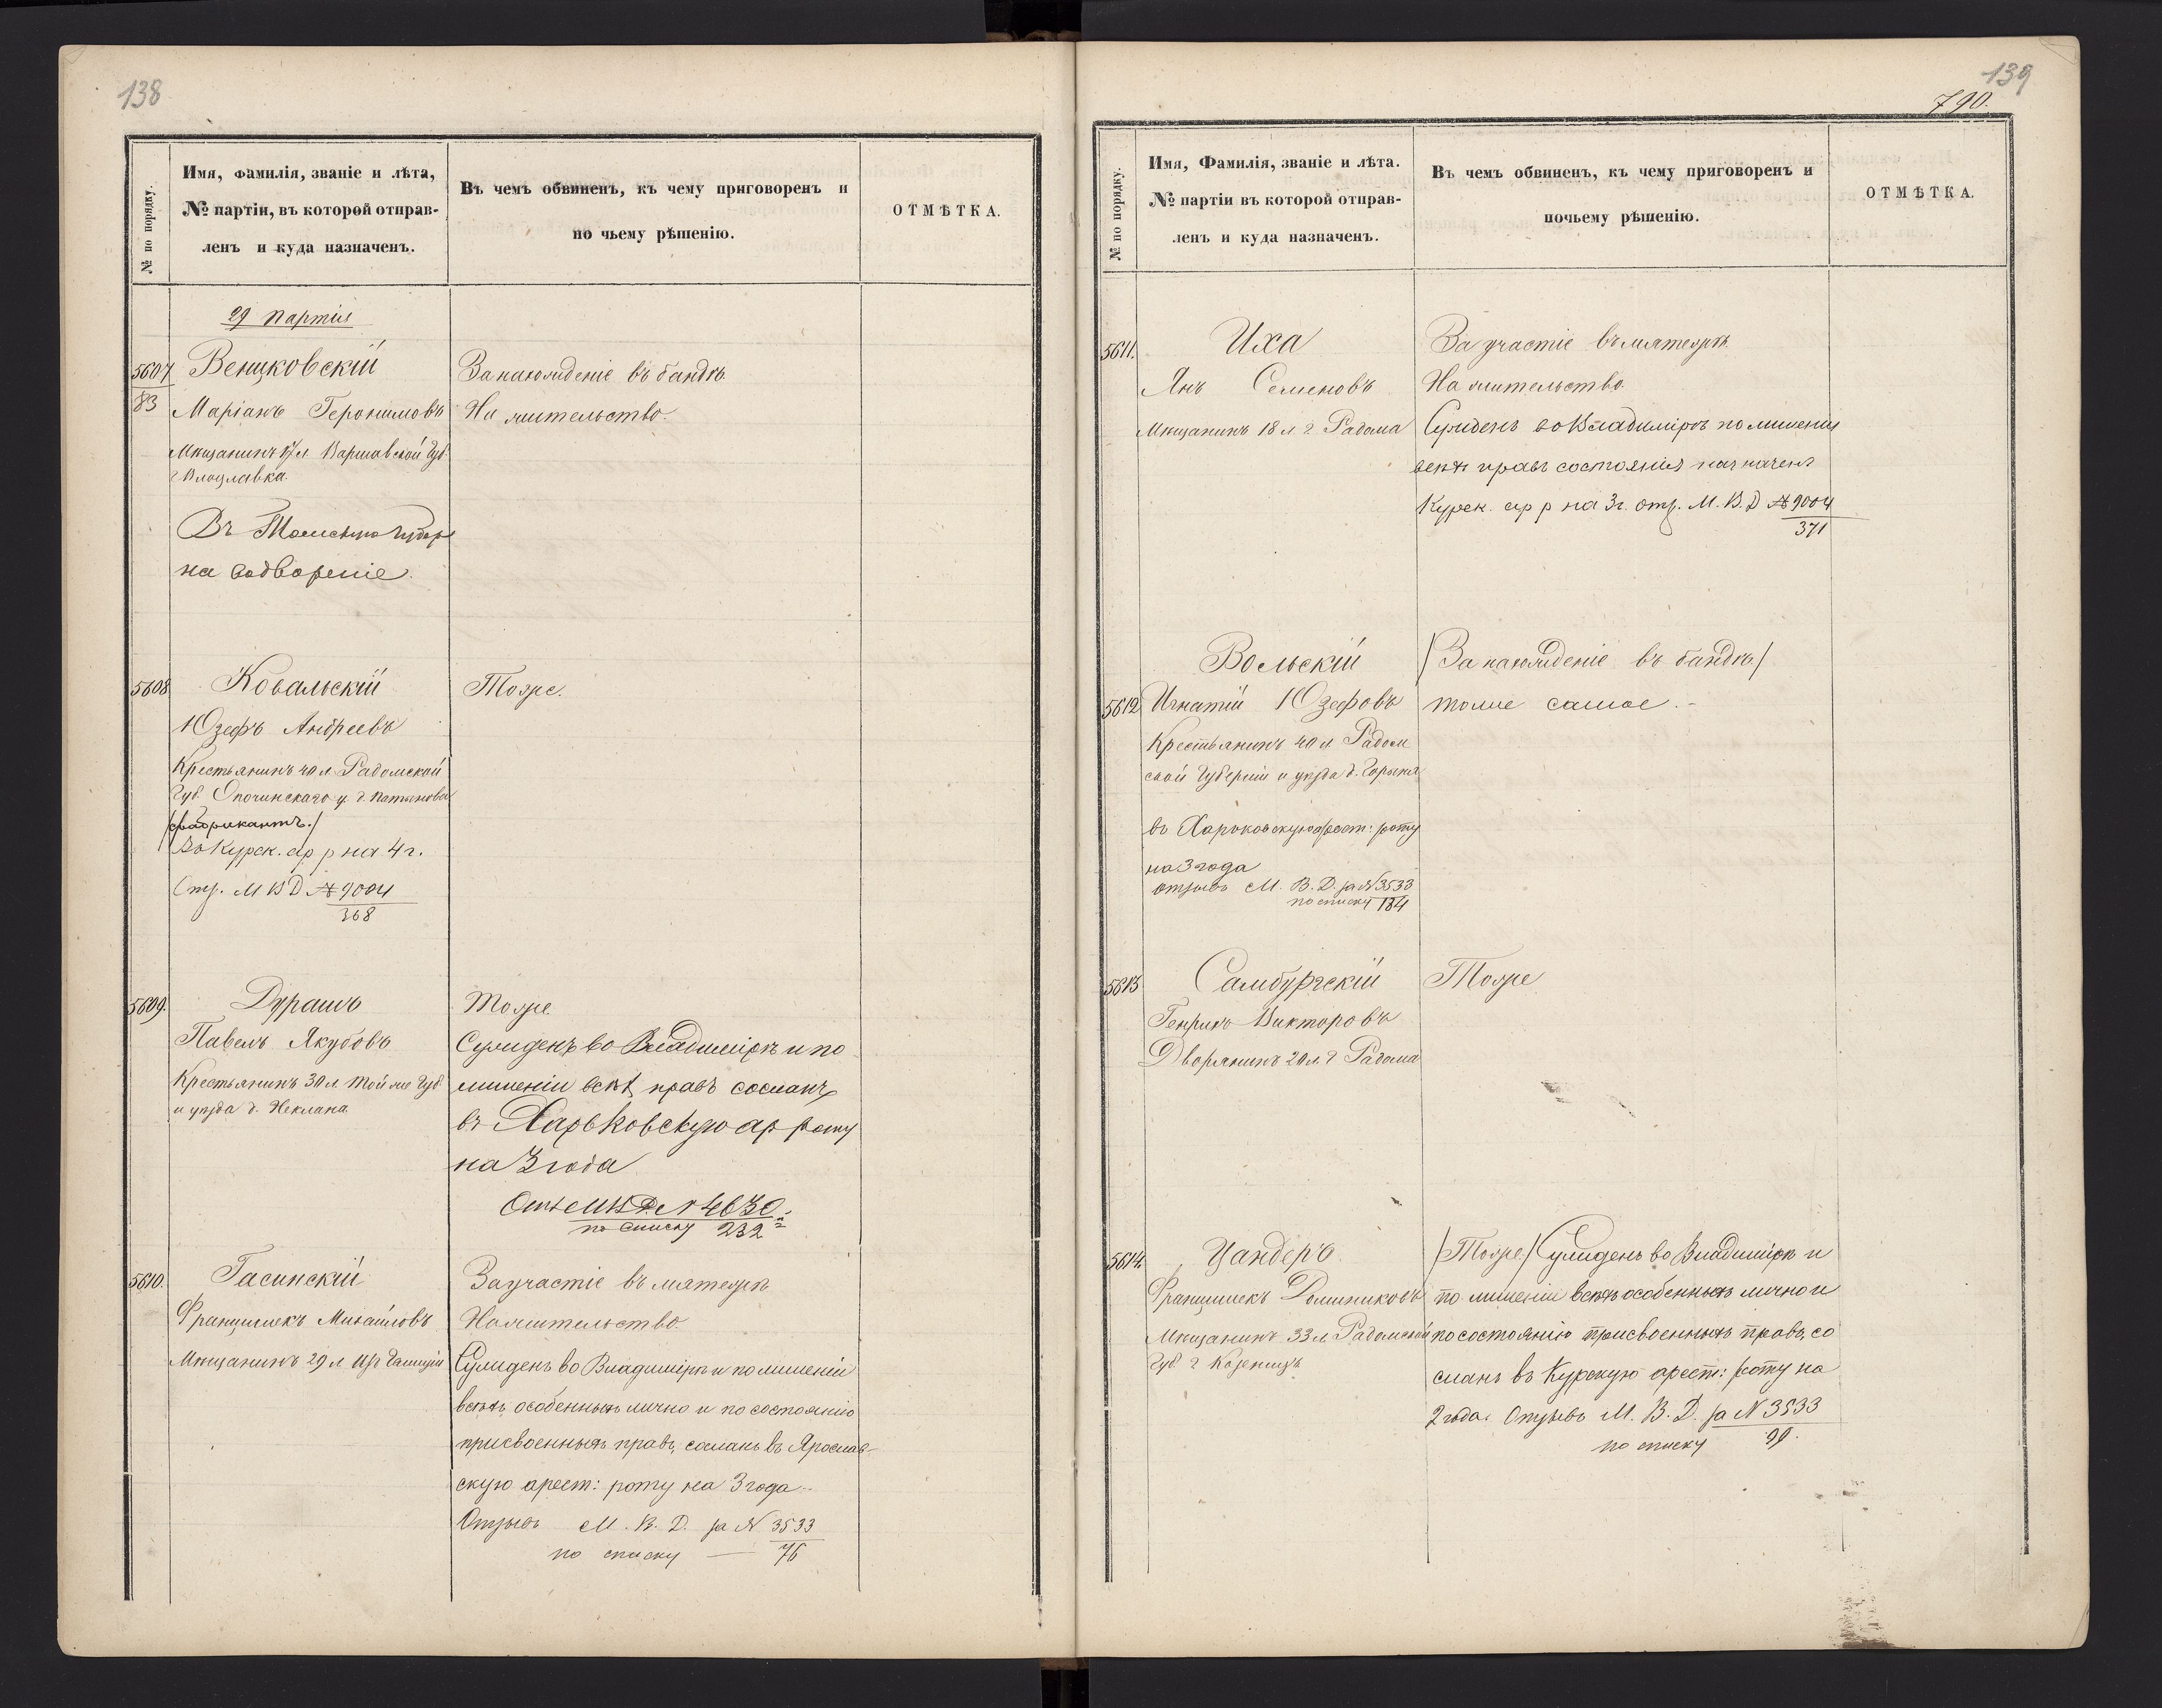 138
№ по порядку.
Имя, Фамилія, званіе и лѣта,
№ партіи, въ которой отправ-
ленъ и куда назначенъ.
Въ чемъ обвиненъ, къ чему приговоренъ и
по чьему рѣшенію.
ОТМѢТКА.
29 партія
5607
83
Венцковскій
Маріанъ Геронимовъ
Мѣщанинъ л Варшавской Губ.
г Влоцлавка.
Въ Томскую губер
на водвореніе.
За нахожденіе въ бандѣ.
На жительство.
5608
Ковальскій
Юзефъ Андреевъ
Крестьянинъ 40 л Радомской
Губ. Опочинскаго у. д.
/фабрикантъ./
Въ Курск. ар р на 4 г.
Отз. М В Д № 9004
368
Тоже.
5609.
Дурашъ
Павелъ Якубовъ
Крестьянинъ 30 л той же Губ
и уѣзда д. Неклана
Тоже
Сужденъ во Владимірѣ и по
лишеніи всѣхъ правъ сосланъ
въ Харьковскую ар роту
на 3 года
Отз МВД № 4630.
по списку 232
5610.
Гасинскій
Францишекъ Михайловъ
Мѣщанинъ 29 л Изъ Галиціи
За участіе въ мятежѣ
На жительство.
Сужденъ во Владимірѣ и по лишеніи
всѣхъ особенныхъ лично и по состоянію
присвоенныхъ правъ, сосланъ въ Ярослав-
скую арест: роту на 3 года.
Отзывъ М. В. Д. за № 3533
по списку — 76
139
790.
№ по порядку.
Имя, Фамилія, званіе и лѣта.
№ партіи въ которой отправ-
ленъ и куда назначенъ.
Въ чемъ обвиненъ, къ чему приговоренъ и
почьему рѣшенію.
ОТМѢТКА.
5611.
Иха
Янъ Семеновъ
Мѣщанинъ 18 л г Радома
За участіе въ мятежѣ.
На жительство.
Сужденъ во Владимірѣ по лишеніи
всѣхъ правъ состоянія назначенъ
Курск. ар р на 3 г. отз. М. В. Д № 9004
371
5612
Вольскій
Игнатій Юзефовъ
Крестьянинъ 40 л Радом
ской Губерніи и уѣзда д.
въ Харьковскую арест: роту
на 3 года
отзывъ М. В. Д. за № 3533
по списку 184
/За нахожденіе въ бандѣ/
тоже самое.
5613
Самбургскій
Генрикъ Викторовъ
Дворянинъ 20 л г Радома
Тоже
5614.
Цандеръ
Францишекъ Доминиковъ
Мѣщанинъ 33 л Радомской
Губ г Козеницъ
/Тоже/ Сужденъ во Владимірѣ и
по лишеніи всѣхъ особенныхъ лично и
по состоянію присвоенныхъ правъ, со
сланъ въ Курскую арест: роту на
2 года. Отзывъ М. В. Д. за № 3533
по списку 99.